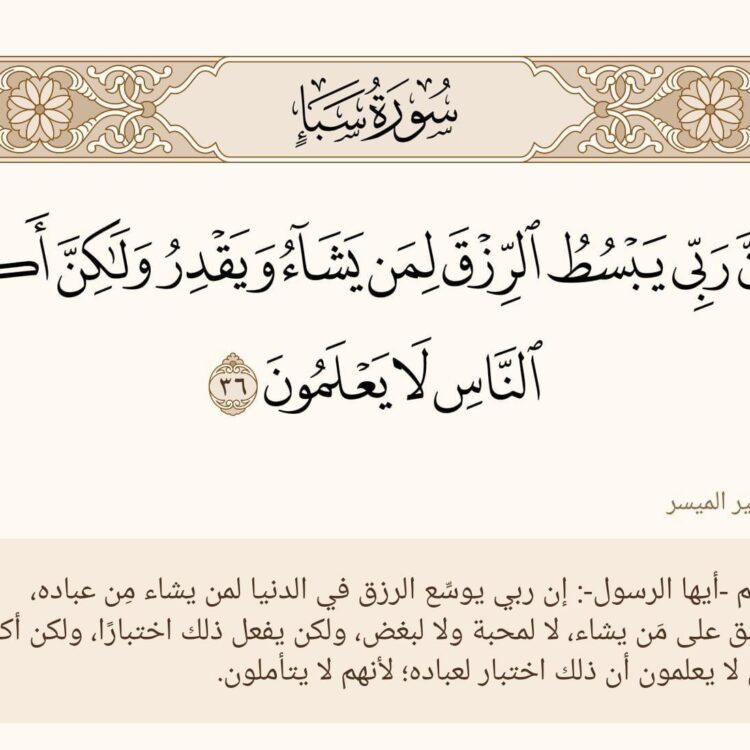 سُورَةُ سَبَإٍ
رَبِّي يَبۡسُطُ ٱلرِّزۡقَ لِمَن يَشَآءُ وَيَقۡدِرُ وَلَٰكِنَّ
ٱلنَّاسِ لَا يَعۡلَمُونَ ٣٦
الميسر
-أيها الرسول-: إن ربي يوسِّع الرزق في الدنيا لمن يشاء مِن عباده،
على مَن يشاء، لا لمحبة ولا لبغض، ولكن يفعل ذلك اختبارًا، ولكن
لا يعلمون أن ذلك اختبار لعباده؛ لأنهم لا يتأملون.